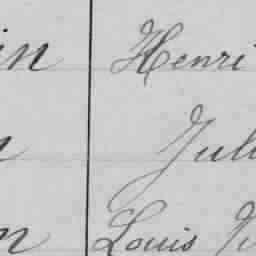 in Henri
n Jul
n Louis